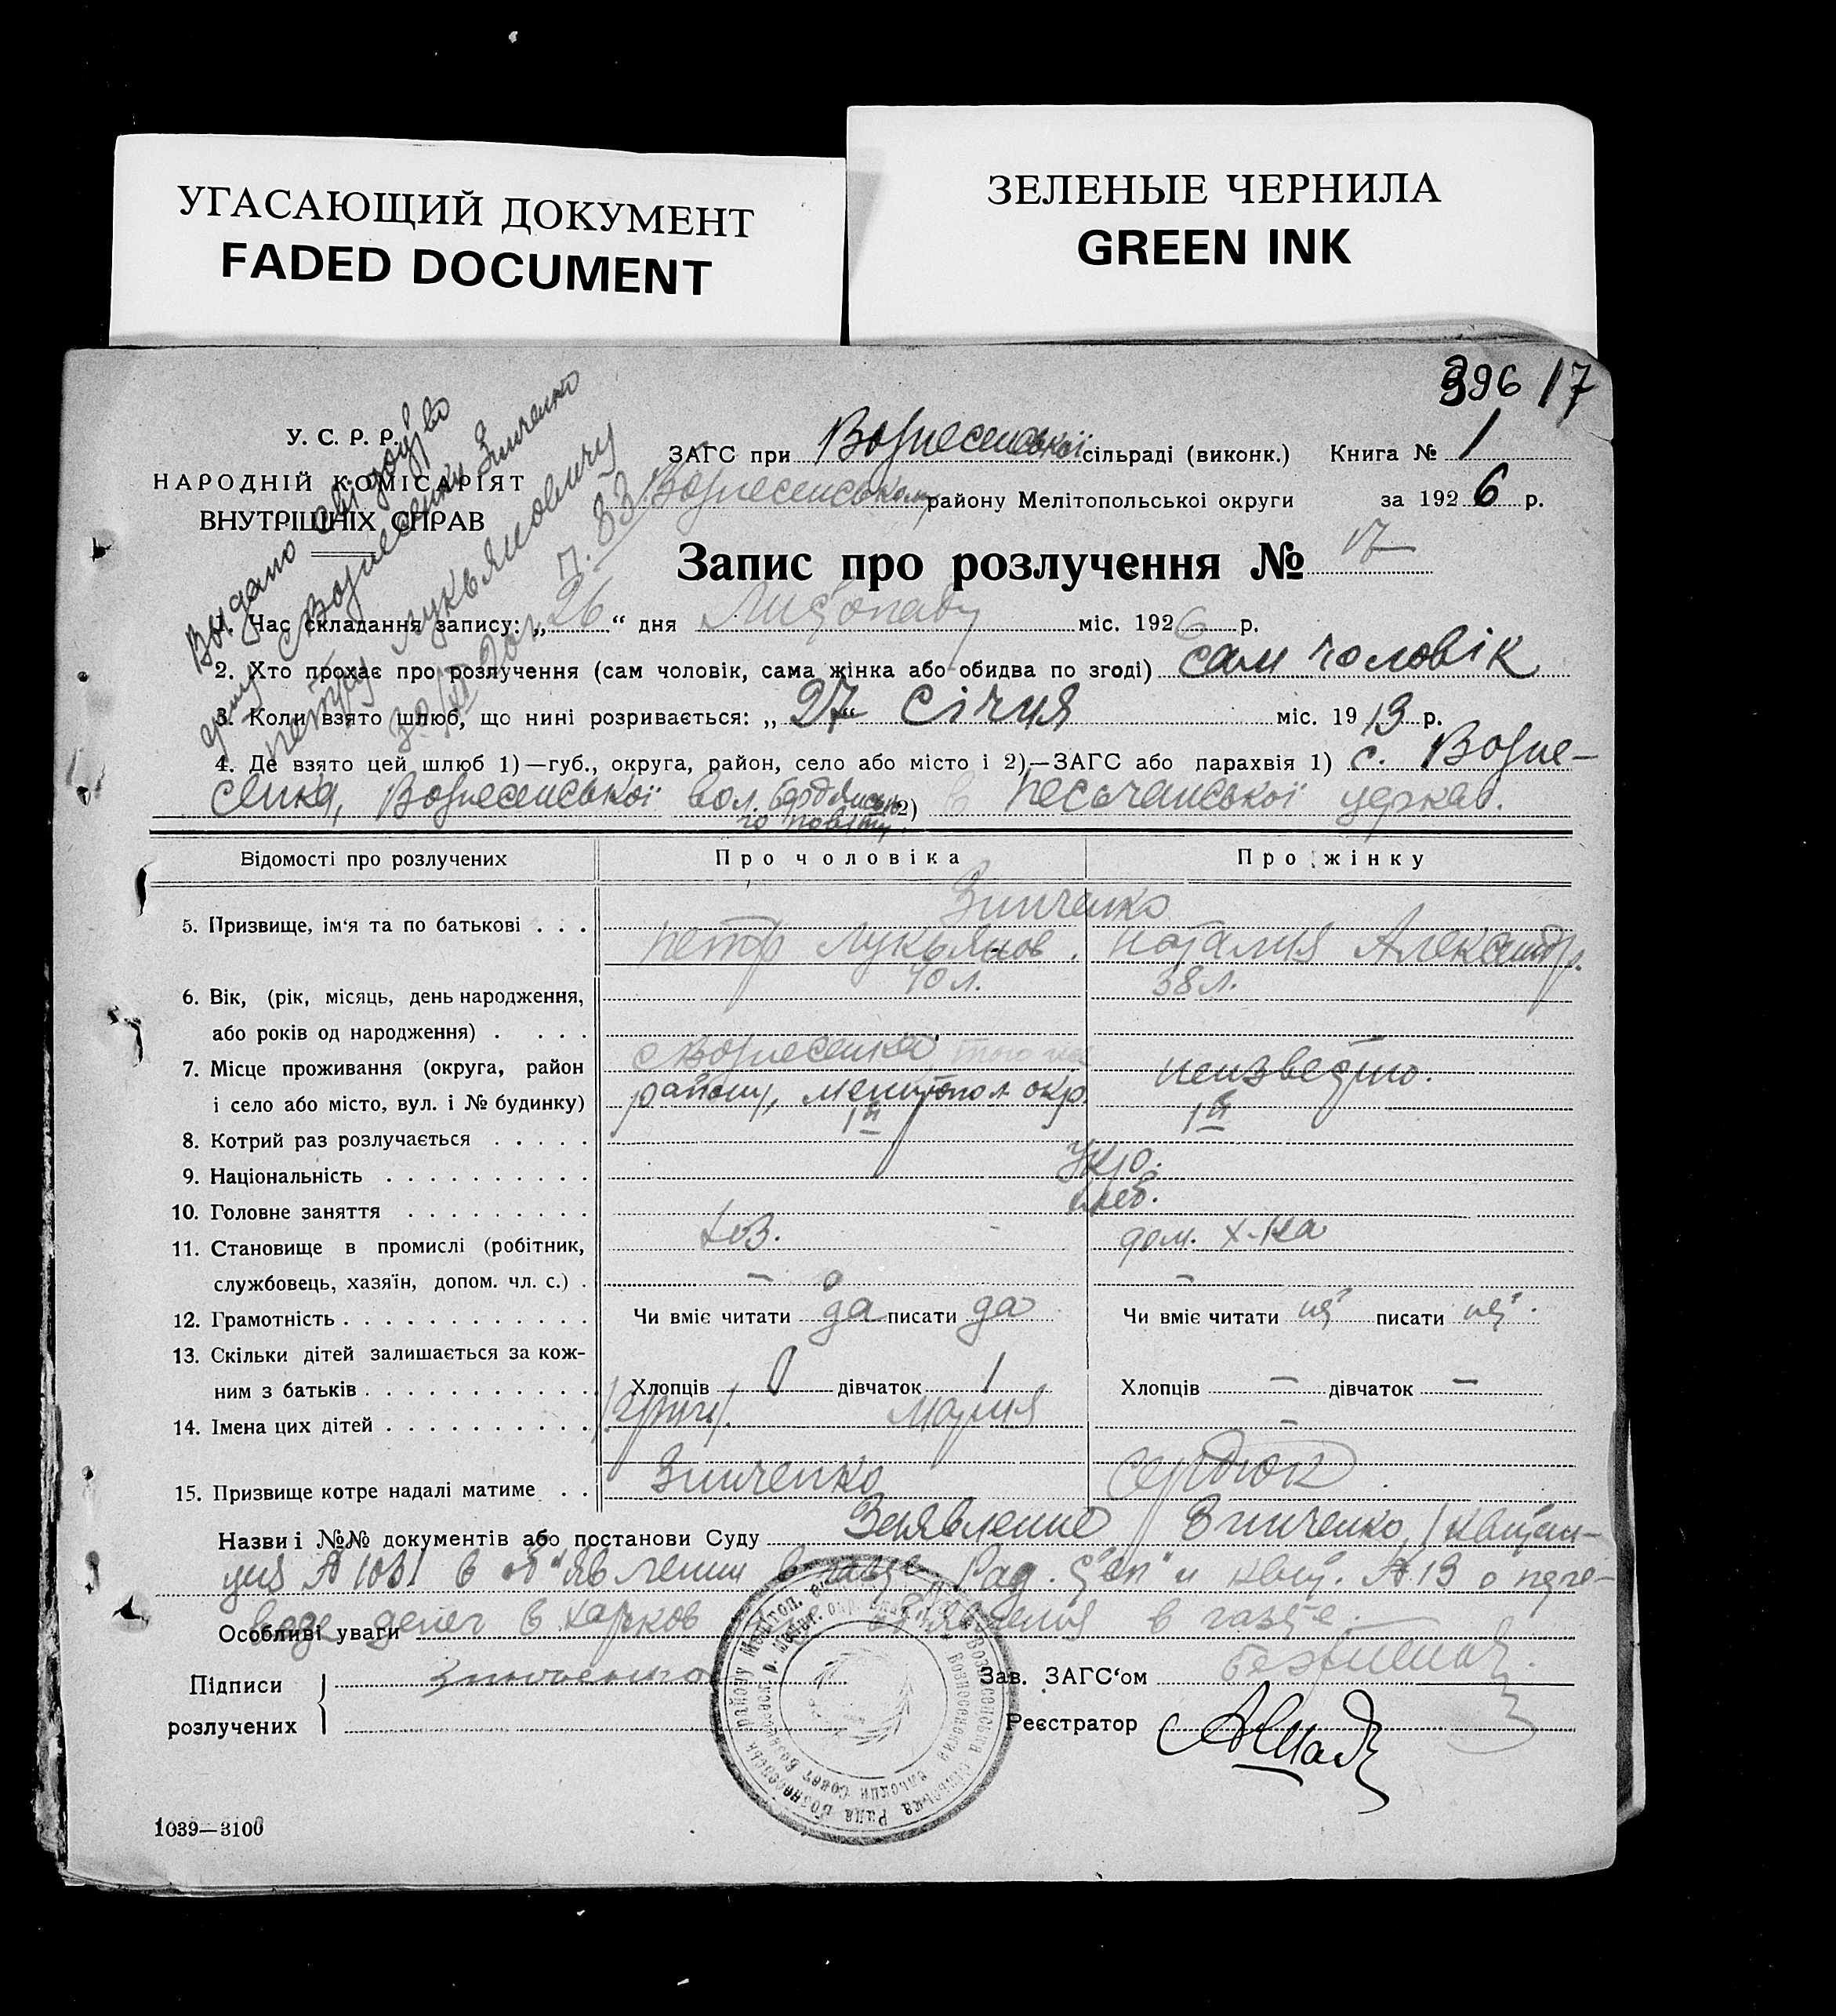 УГАСАЮЩИЙ ДОКУМЕНТ
FADED DOCUMENT
ЗЕЛЕНЫЕ ЧЕРНИЛА
GREEN INK
396 17
У. С. Р. Р.
НАРОДНІЙ КОМІСАРІЯТ
ВНУТРІШНІХ СПРАВ
Выдано
Вознесенки Зинченко
Петру Лукьяновичу
п. 83
ЗАГС при Вознесенської сільраді (виконк.) Книга № 1
Вознесенському району Мелітопольської округи за 1926 р.
Запис про розлучення № 17
1. Час складання запису: „26“ дня Листопаду міс. 1926 р.
2. Хто прохає про розлучення (сам чоловік, сама жінка або обидва по згоді) сам чоловік
3. Коли взято шлюб, що нині розривається: „27“ січня міс. 1913 р.
4. Де взято цей шлюб 1)—губ., округа, район, село або місто і 2)—ЗАГС або парахвія 1) с. Возне-
сенка, Вознесенської вол. Бердянсько-
го повіту. 2) в Песчанської церкві.
Відомості про розлучених Про чоловіка Про жінку
Зинченко
5. Призвище, ім'я та по батькові . . . Петр Лукьянов. Наталия Александр.
6. Вік, (рік, місяць, день народження, 40 л. 38 л.
або років од народження) . . . .
7. Місце проживання (округа, район с Вознесенка, того же неизвестно.
і село або місто, вул. і № будинку) району, Мелитопол окр.
8. Котрий раз розлучається . . . . . 1й 1й
9. Національність . . . . . . . . . . Укр.
10. Головне заняття . . . . . . . . . хлеб.
11. Становище в промислі (робітник, хоз. дом. х-ка
службовець, хазяїн, допом. чл. с.) . – –
12. Грамотність . . . . . . . . . . . . Чи вміє читати да писати да Чи вміє читати нет писати нет.
13. Скільки дітей залишається за кож-
ним з батьків . . . . . . . . . . . Хлопців 0 дівчаток 1 Хлопців – дівчаток –
14. Імена цих дітей . . . . . . . . . . Мария –
15. Призвище котре надалі матиме . . Зинченко Сердюк.
Назви і №№ документів або постанови Суду Заявление Зинченко, /квитан-
ция № 1031 в газ. Рад. Степ" и квит. № 13 о пере-
денег в Харков в газете.
Особливі уваги
Підписи Зинченко Зав. ЗАГС'ом
розлучених Реєстратор
1039—3100